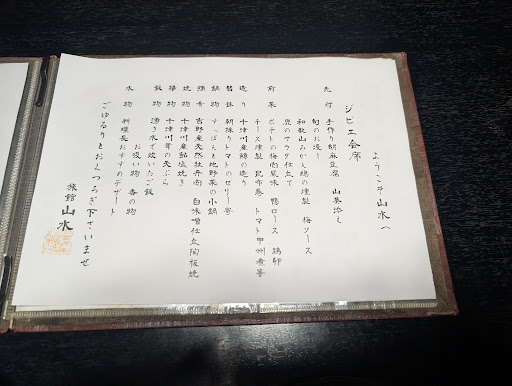 ようこそ山水へ
ジビエ会席
先付 手作り胡麻豆腐 山葵添え
旬のお浸し
和歌山みかん鶏の燻製 梅ソース
鹿のサラダ仕立て
前菜 ポテトの梅肉風味 鴨ロース 鶉卵
チーズ燻製 昆布巻 トマト甲州煮 等
造り 十津川産鱒の造り
箸休 朝採りトマトのゼリー寄
鍋物 すっぽんと地野菜の小鍋
強肴 吉野産天然牡丹肉 白味噌仕立陶板焼
焼物 十津川産鮎塩焼き
揚物 十津川茸の天ぷら
飯物 湧き水で炊いたご飯
お吸い物 香の物
水物 料理長おすすめデザート
ごゆるりとおくつろぎ下さいませ
旅館 山水